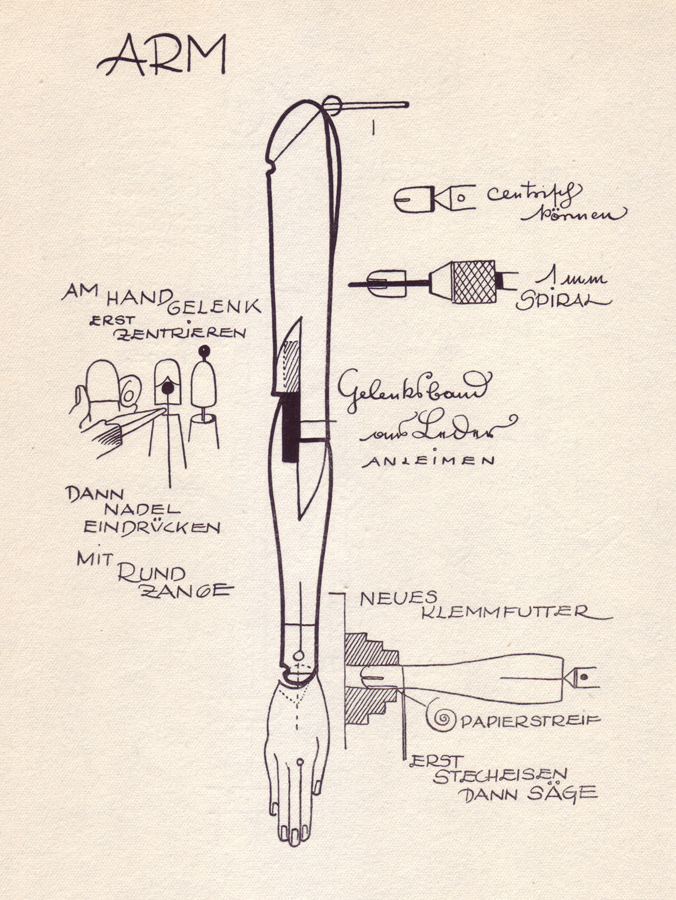 ARM
1
centrisch
können
1 mm
SPIRAL
AM HANDGELENK
ERST
ZENTRIEREN
Gelenksband
aus Leder
ANLEIMEN
DANN
NADEL
EINDRÜCKEN
MIT RUND
ZANGE
NEUES
KLEMMFUTTER
PAPIERSTREIF
ERST
STECHEISEN
DANN SÄGE